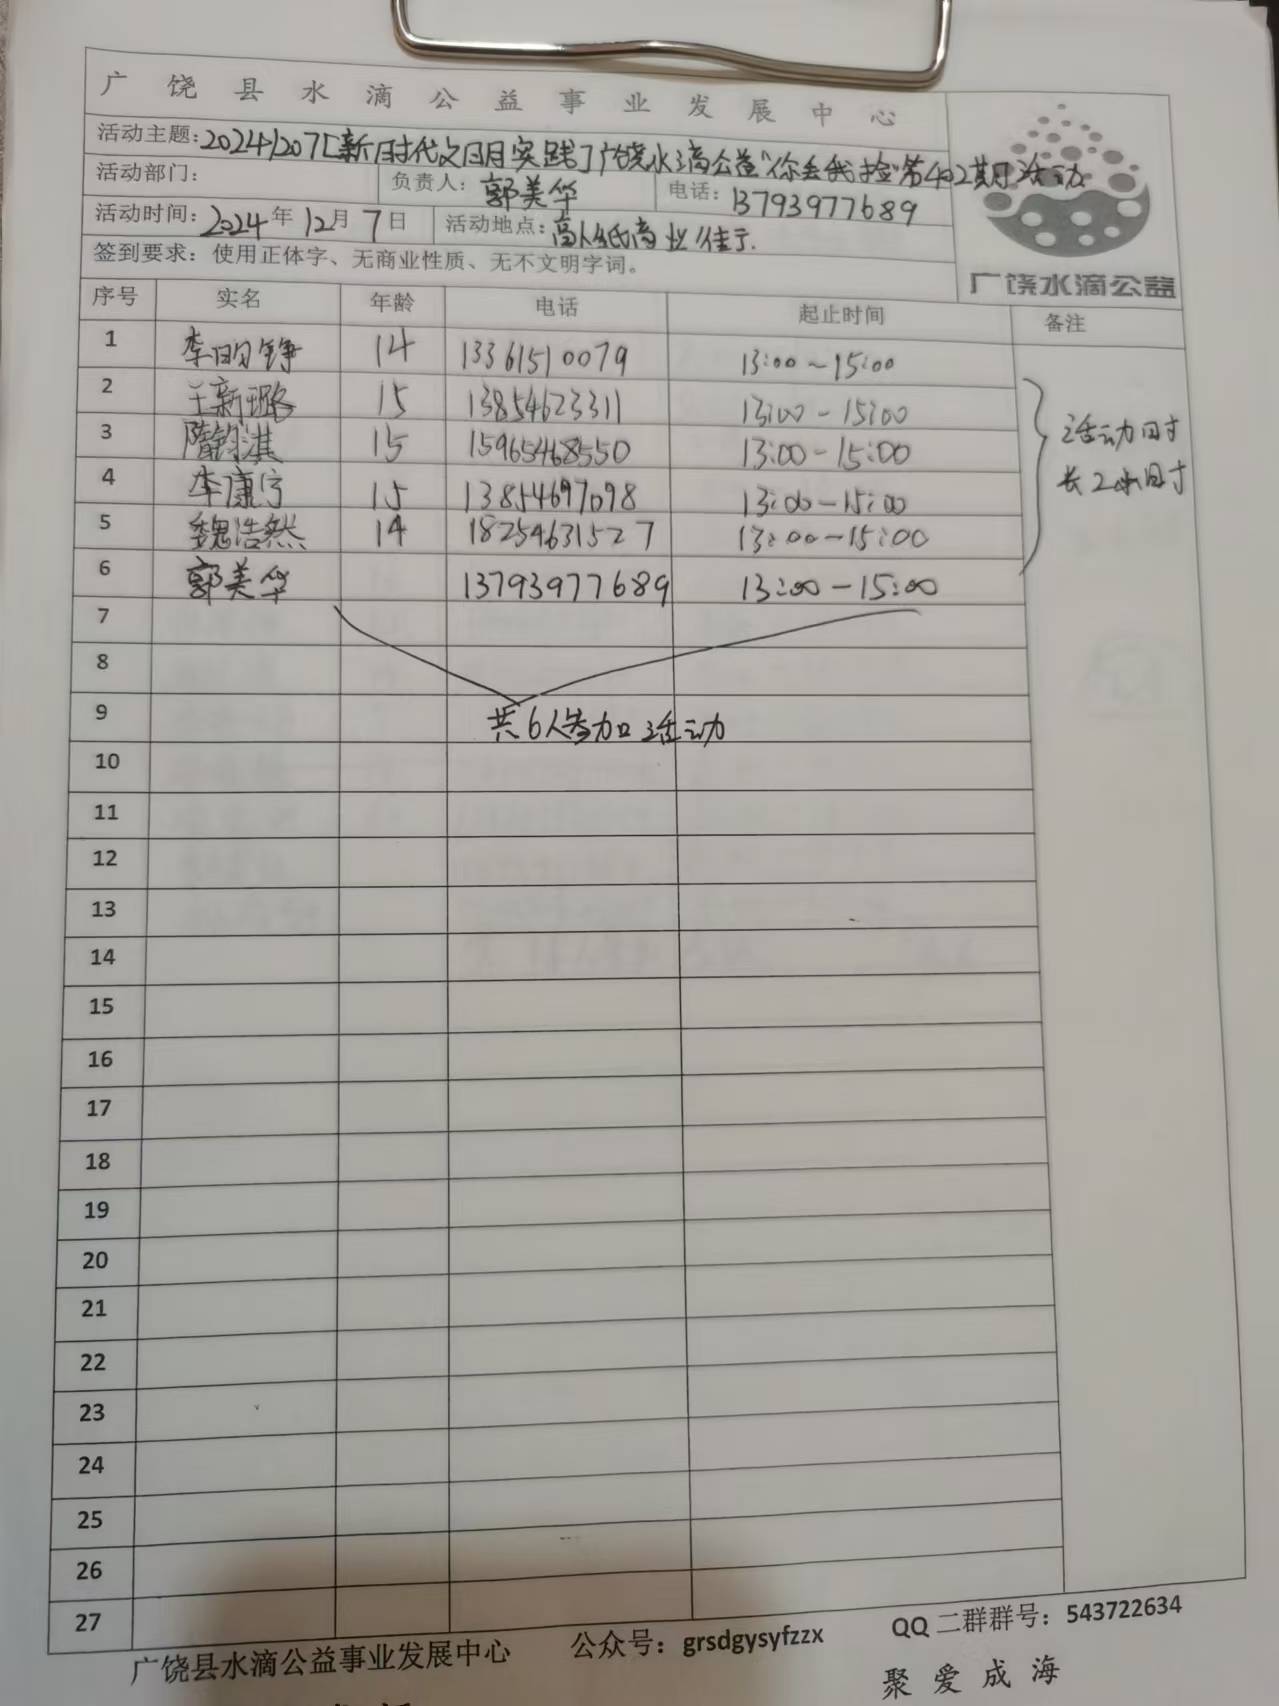 广饶县水滴公益事业发展中心
活动主题:20241207[新时代文明实践]广饶水滴公益"你丢我捡"第402期活动
活动部门: 负责人:郭美华 电话:13793977689
活动时间:2024年12月7日 活动地点:商业街
签到要求:使用正体字、无商业性质、无不文明字词。
广饶水滴公益
序号 实名 年龄 电话 起止时间 备注
1 李明铮 14 13361510079 13:00~15:00
2 王新璐 15 13854623311 13:00-15:00
3 隋钧淇 15 15965468550 13:00-15:00
4 李康宁 15 13854697098 13:00-15:00
5 魏浩然 14 18254631527 13:00-15:00
6 郭美华 13793977689 13:00-15:00
活动时
长2小时
7
8
9 共6人参加活动
10
11
12
13
14
15
16
17
18
19
20
21
22
23
24
25
26
27
广饶县水滴公益事业发展中心 公众号:grsdgysyfzzx QQ二群群号:543722634
聚爱成海